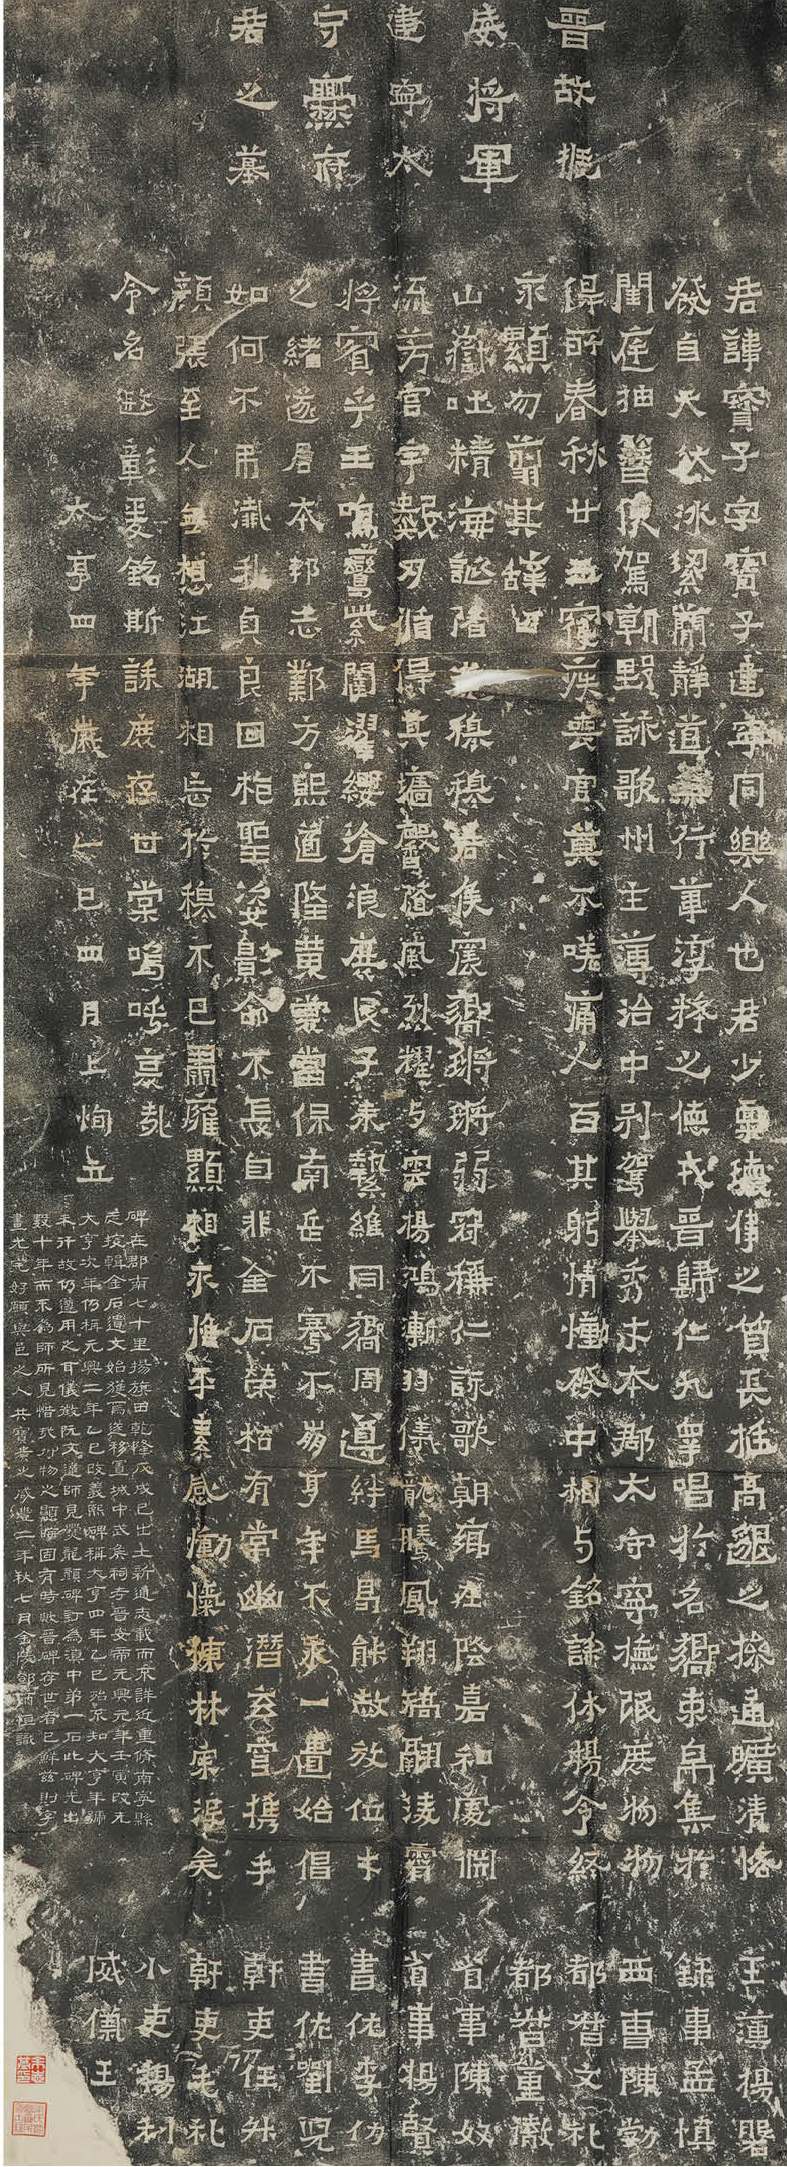 晉故振
威將軍
建寧太
守爨府
君之墓
君諱寶子字寶子建寧同樂人也君少稟瓌偉之質長挺高邈之操通曠清恪
發自天然冰絜簡靜道兼行葦淳粹之德戎晉歸仁九皋唱於名響束帛集於
閨庭抽簪俟駕朝野詠歌州主簿治中別駕舉秀才本郡太守寧撫氓庶物物
得所春秋廿五寢疾喪官莫不嗟痛人百其躬情慟發中相與銘誄休揚令終
永顯勿翦其辭曰
山嶽吐精海誕陽光穆穆君侯震響鏘鏘弱冠稱仁詠歌朝鄉在陰嘉和處淵
流芳宮宇數仞循得其牆馨隨風烈耀與雲揚鴻漸羽儀龍騰鳳翔矯翮凌霄
將賓乎王鳴鸞紫闥濯纓滄浪庶民子來縶維同響周遵絆馬曷能赦放位才
之緒遂居本邦志鄴方熙道隆黃裳當保南岳不騫不崩享年不永一匱始倡
如何不弔殲我貞良回枹聖姿影命不長自非金石榮枯有常幽潛玄穹攜手
顏張至人無想江湖相忘於穆不已肅雍顯相永惟平素感慟慷慷林宗沒矣
令名遐彰爰銘斯誄庶存甘棠嗚呼哀哉
太亨四年歲在乙巳四月上恂立
碑在郡南七十里揚旗田乾隆戊戌已出土新通志載而不詳近重修南寧縣
志搜輯金石遺文始獲焉遂移置城中武侯祠考晉安帝元興元年壬寅改元
大亨次年仍稱元興二年乙巳改義熙碑稱大亨四年乙巳殆不知大亨年號
未行故仍遵用之耳儀徵阮文達師見爨龍顏碑訂為滇中第一石此碑先出
數十年而不為師所見惜哉抑物之顯晦固有時歟晉碑存世者已鮮茲則字
畫尤完好願與邑之人共寶貴之咸豐二年秋七月金陵鄧爾恒識
主簿楊磐
錄事孟慎
西曹陳勃
都督文禮
都督董徹
省事陳奴
省事楊賢
書佐李仂
書佐劉兒
幹吏任升
幹吏毛禮
小吏楊利
威儀王